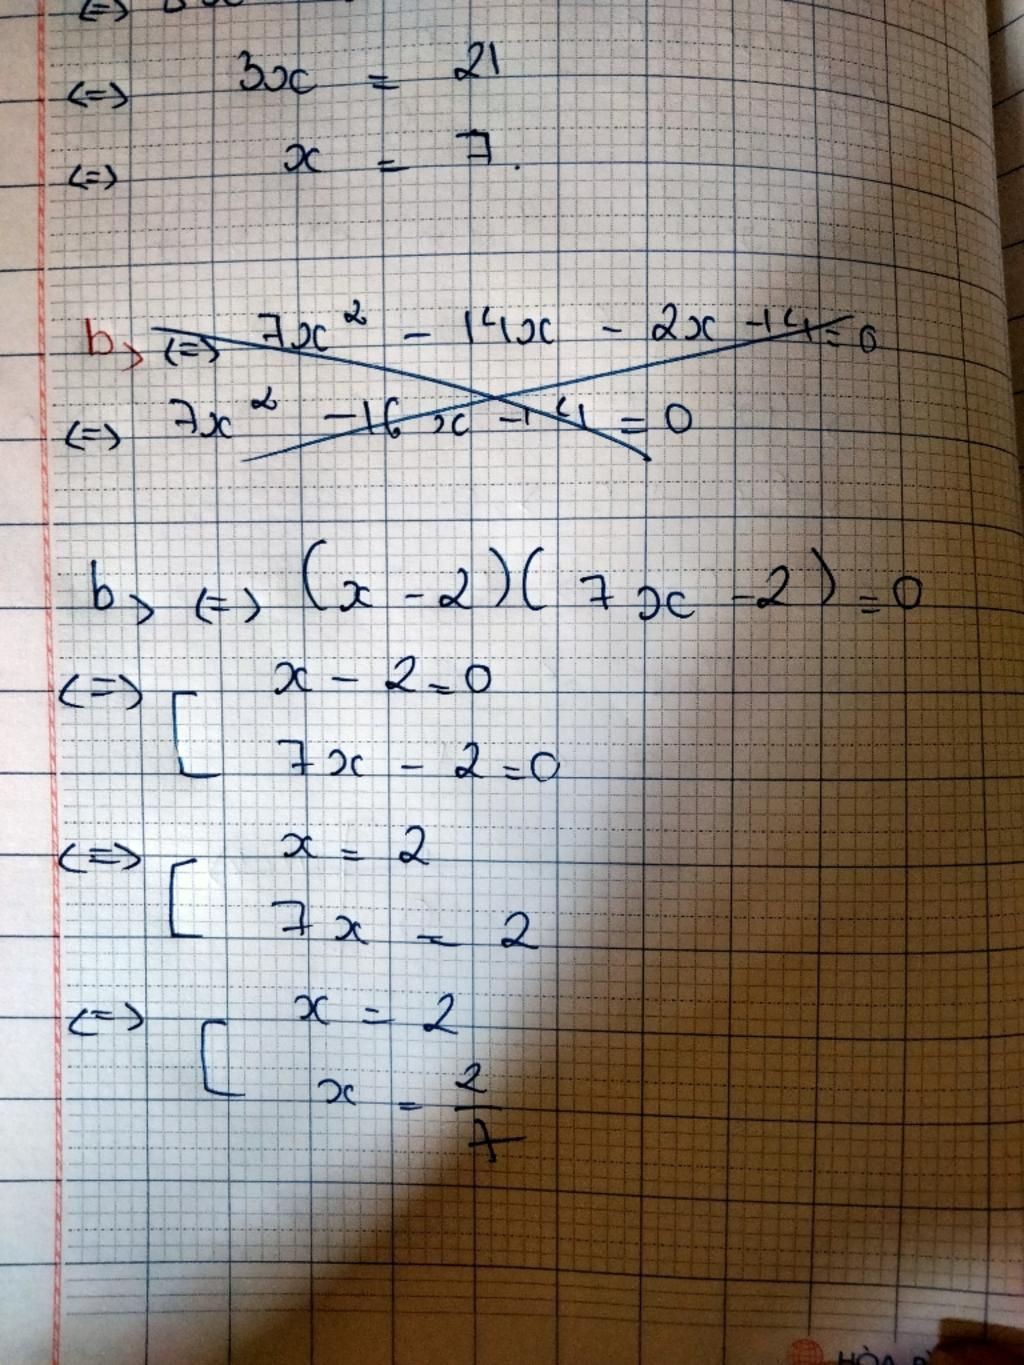 <=> 3x = 21
<=> x = 7.
b> <=> 7x² - 14x - 2x - 14 = 0
<=> 7x² - 16x - 14 = 0
b> <=> (x - 2)(7x - 2) = 0
<=> [ x - 2 = 0
7x - 2 = 0
<=> [ x = 2
7x = 2
<=> [ x = 2
x = 2/7